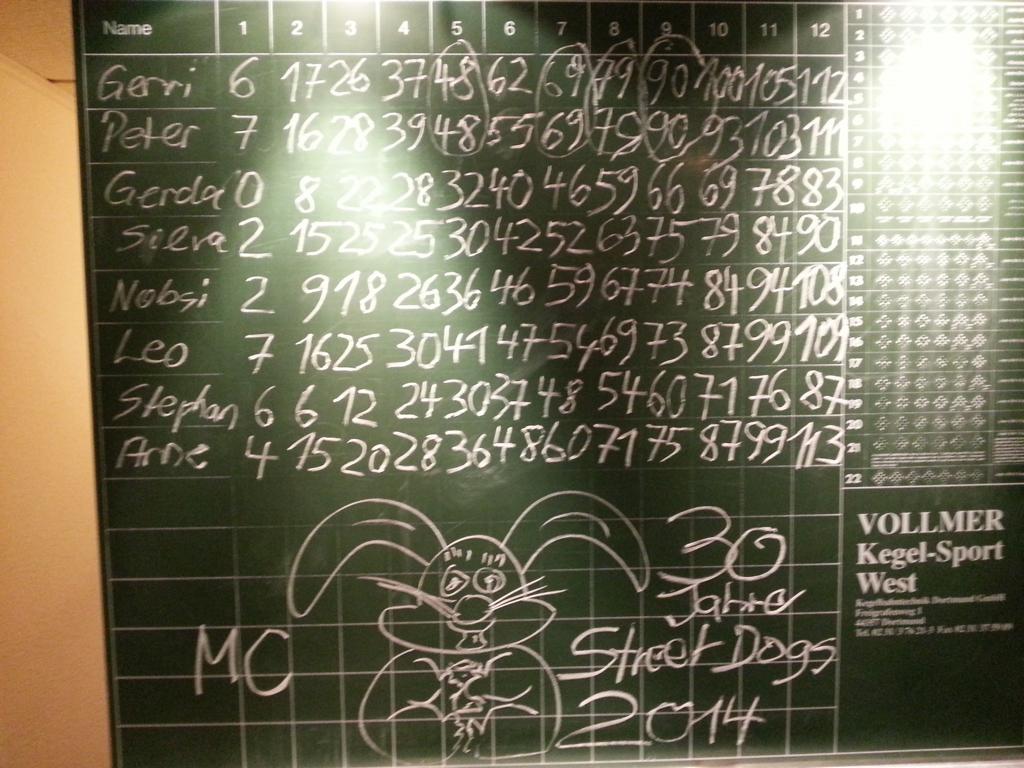 Name 1 2 3 4 5 6 7 8 9 10 11 12
Gerri 6 17 26 37 48 62 69 79 90 100 105 112
Peter 7 16 28 39 48 55 69 79 90 93 103 111
Gerda 0 8 22 28 32 40 46 59 66 69 78 83
Silva 2 15 25 25 30 42 52 63 75 79 84 90
Nobsi 2 9 18 26 36 46 59 67 74 84 94 108
Leo 7 16 25 30 41 47 54 69 73 87 99 109
Stephan 6 6 12 24 30 37 48 54 60 71 76 87
Arne 4 15 20 28 36 48 60 71 75 87 99 113
MC
30
Jahre
Street Dogs
2014
1
2
3
4
5
6
7
8
9
10
11
12
13
14
15
16
17
18
19
20
21
22
VOLLMER
Kegel-Sport
West